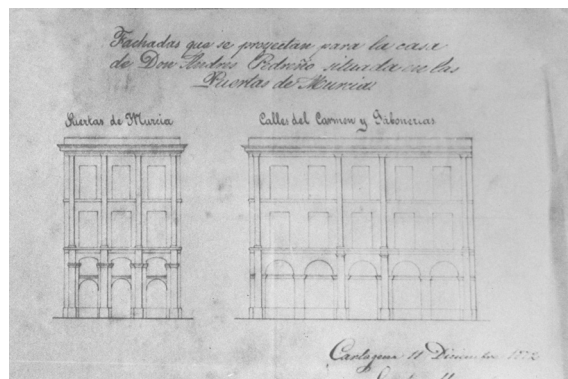 Fachadas que se proyectan para la casa
de Don Andres Pedreño situada en las
Puertas de Murcia
Puertas de Murcia
Calles del Carmen y Jabonerias
Cartagena 11 Diciembre 1872